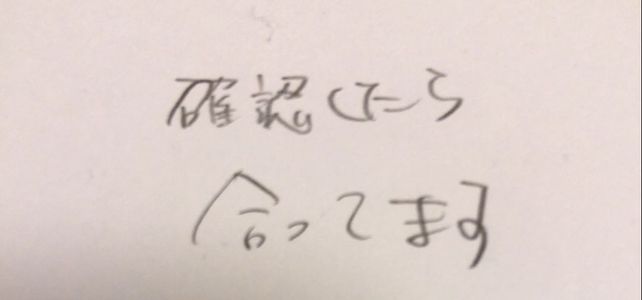 確認したら
合ってます